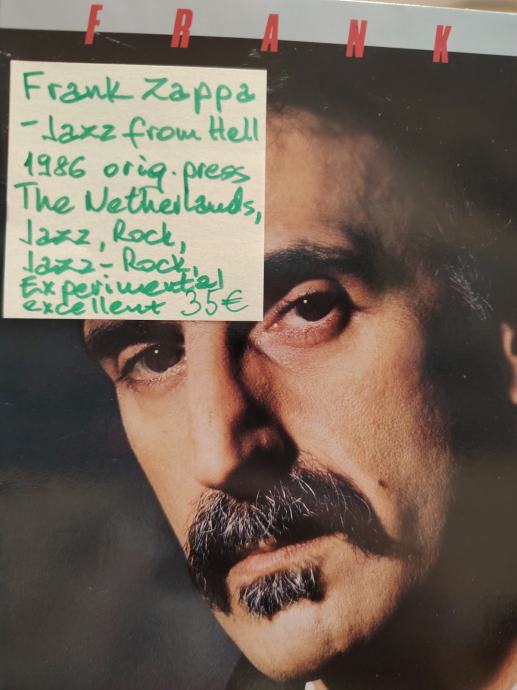 FRANK
Frank Zappa
- Jazz from Hell
1986 orig. press
The Netherlands,
Jazz, Rock,
Jazz-Rock,
Experimental
excellent 35€